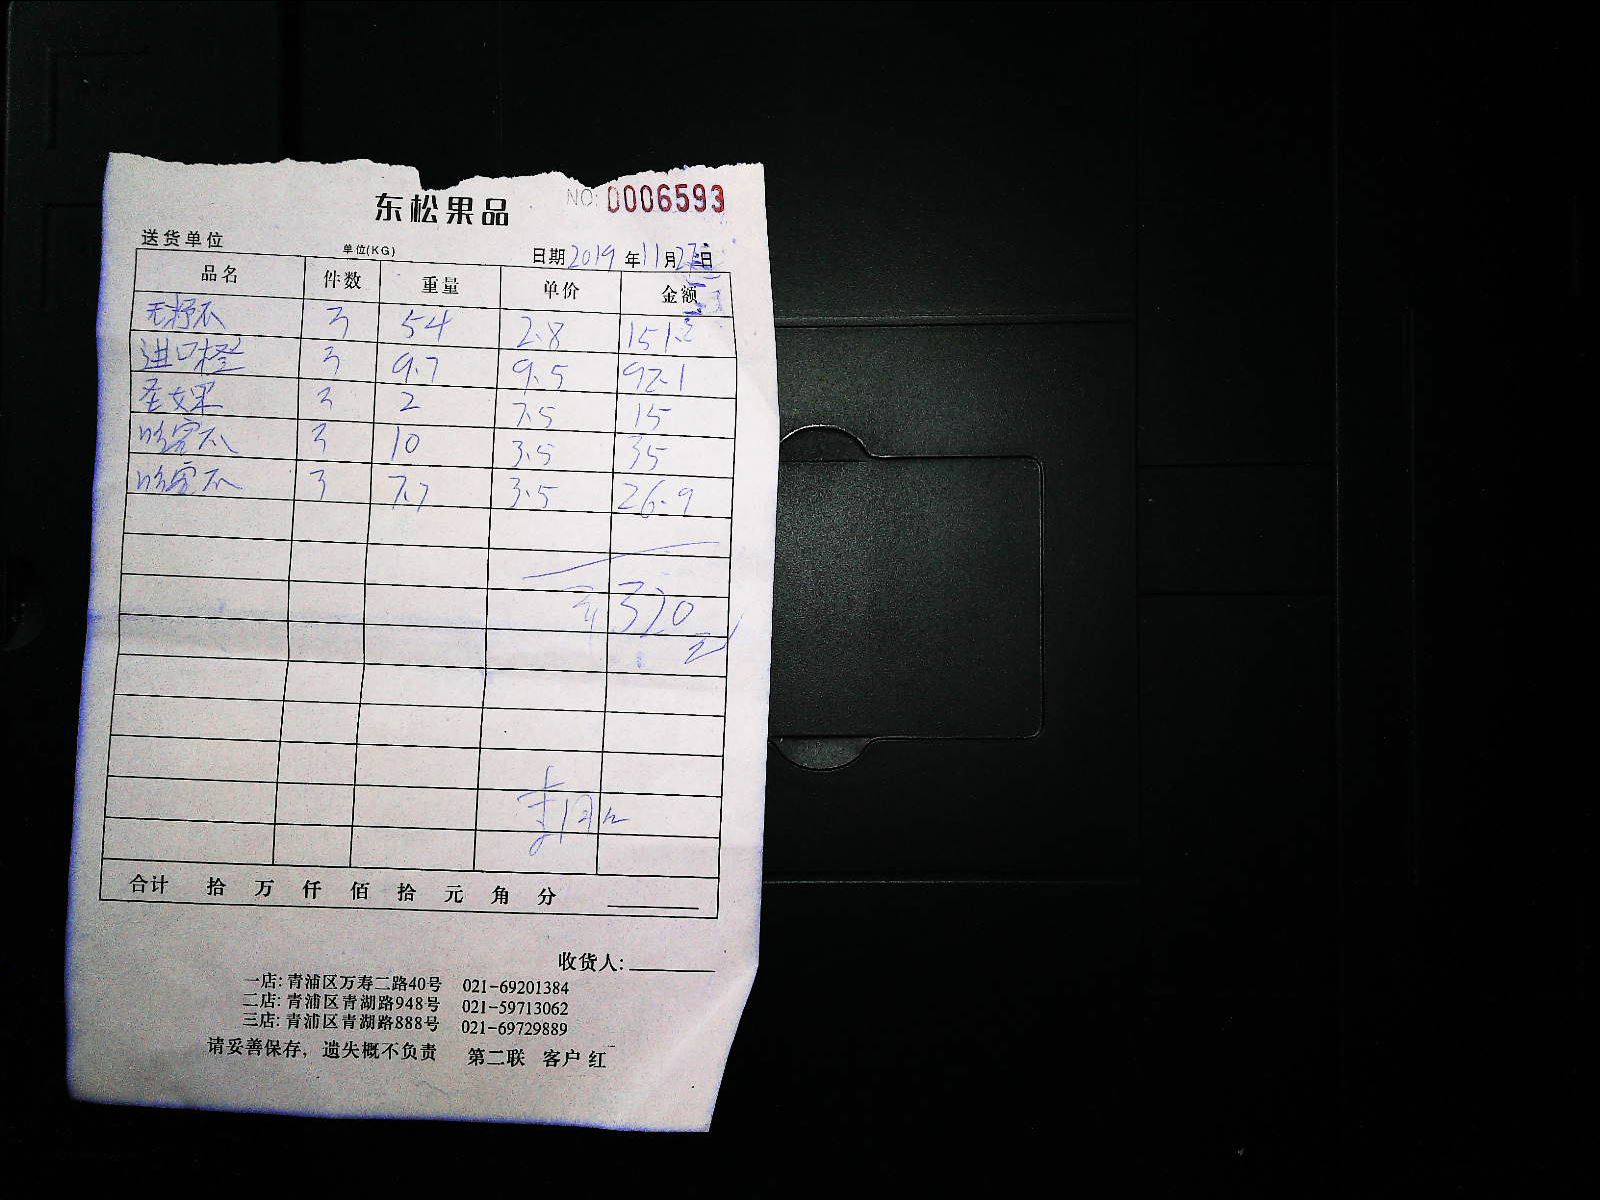 东松果品
NO: 0006593
送货单位 单位(KG) 日期 2019 年 11 月 27 日
品名 件数 重量 单价 金额
3 54 2.8 151.2
进口橙 3 9.7 9.5 92.1
圣女果 3 2 7.5 15
哈密瓜 3 10 3.5 35
哈密瓜 3 7.7 3.5 26.9
320
合计 拾 万 仟 佰 拾 元 角 分
收货人:
一店: 青浦区万寿二路40号 021-69201384
二店: 青浦区青湖路948号 021-59713062
三店: 青浦区青湖路888号 021-69729889
请妥善保存，遗失概不负责 第二联 客户 红